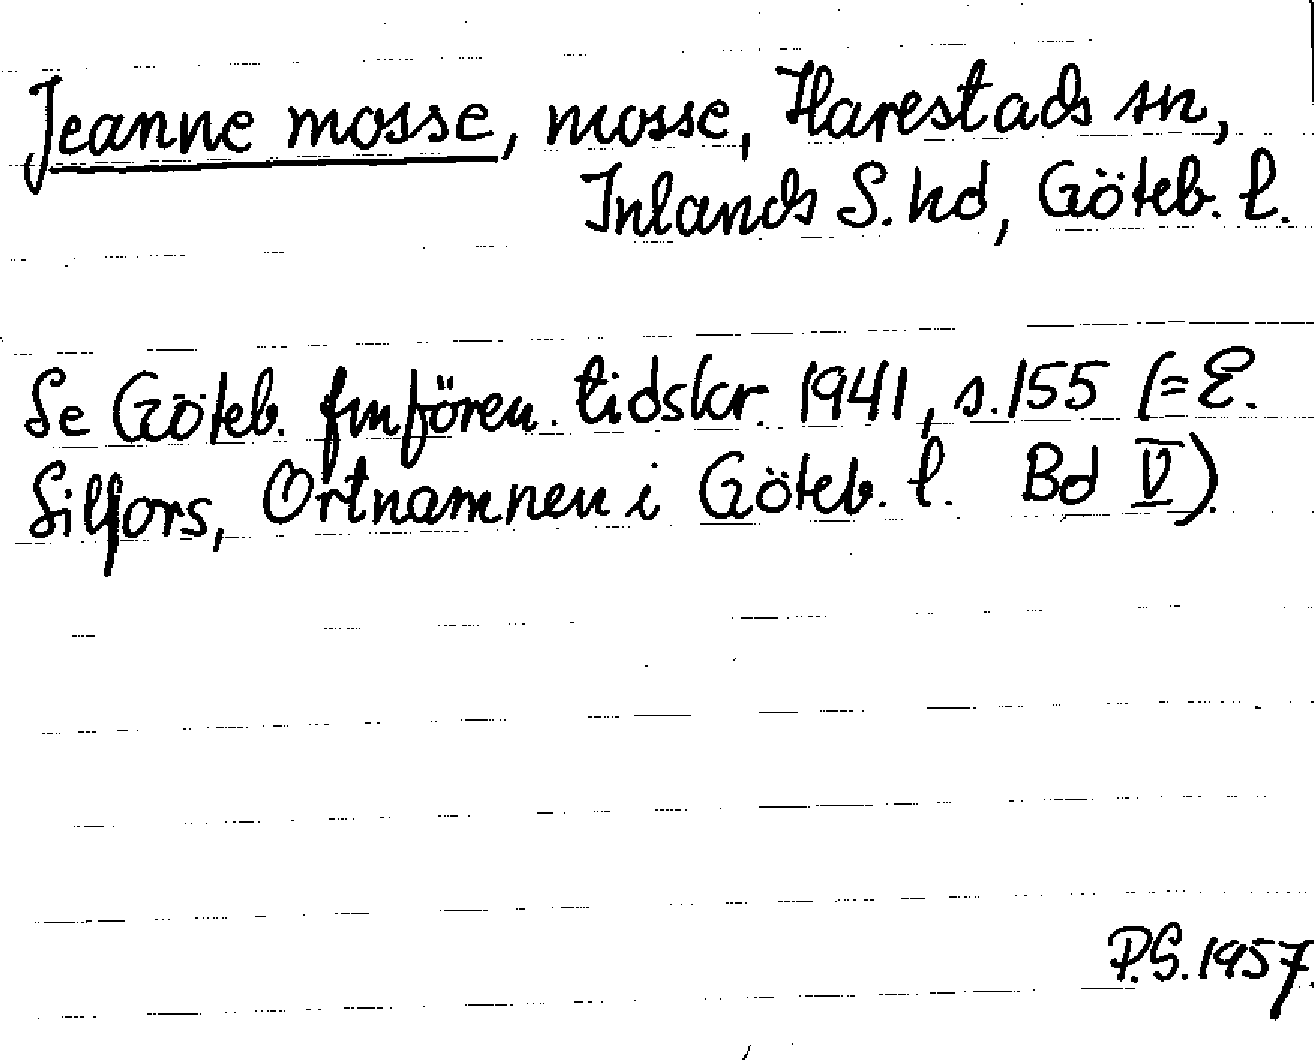 Jeanne mosse, mosse, Harestads sn,
Inlands S. hd, Göteb. l.
Se Göteb. fmfören. tidskr. 1941, s. 155 (= E.
Silfors, Ortnamnen i Göteb. l. Bd V).
P.S. 1957.